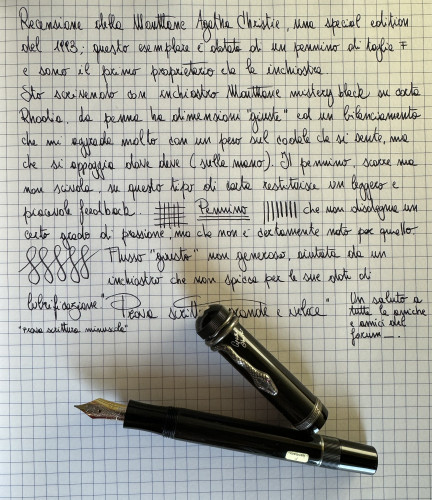 Recensione della Montblanc Agatha Christie, una special edition
del 1993; questo esemplare è dotato di un pennino di taglia F
e sono il primo proprietario che la inchiostra.
Sto scrivendo con inchiostro Montblanc mistery black su carta
Rhodia, la penna ha dimensioni "giuste" ed un bilanciamento
che mi aggrada molto con un peso sul codale che si sente, ma
che si appoggia dove deve (sulla mano). Il pennino, scorre ma
non scivola, su questo tipo di carta restituisce un leggero e
piacevole feedback. Pennino che non disdegna un
certo grado di pressione, ma che non è certamente noto per quello
Flusso "giusto" non generoso, aiutata da un
inchiostro che non spicca per le sue doti di
lubrificazione "Prova grande e veloce"
"Prova scrittura minuscola"
Un saluto a
tutte le amiche
e amici del
forum_.